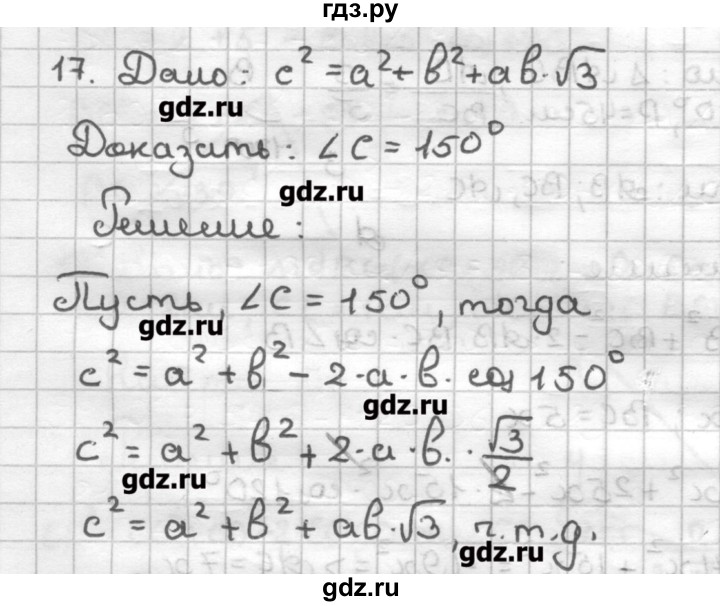 гдз.ру
17. Дано: c² = a² + b² + ab·√3
gdz.ru
Доказать: ∠C = 150°
gdz.ru
Решение:
Пусть, ∠C = 150°, тогда
gdz.ru
c² = a² + b² − 2·a·b·cos 150°
gdz.ru
c² = a² + b² + 2·a·b·√3/2
gdz.ru
c² = a² + b² + ab·√3, ч.т.д.
gdz.ru
gdz.ru